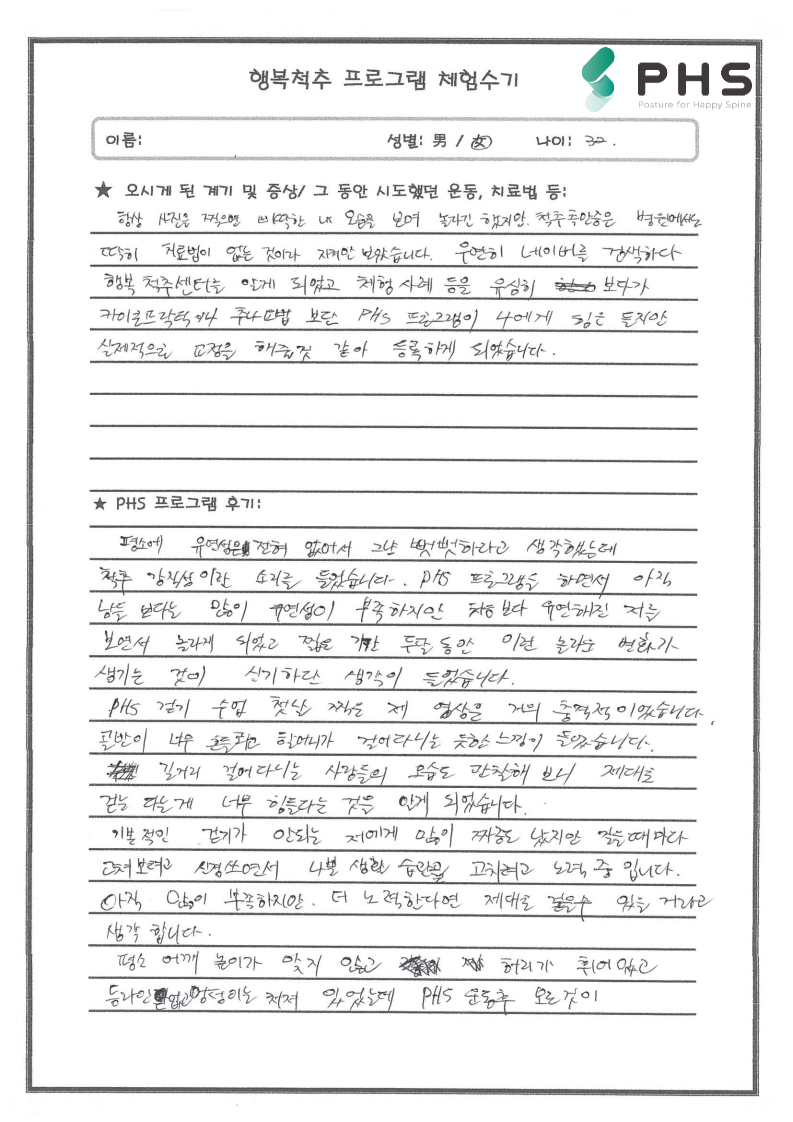 행복척추 프로그램 체험수기
PHS
Posture for Happy Spine
이름: 성별: 男 / 女 나이: 32.
★ 오시게 된 계기 및 증상/ 그 동안 시도했던 운동, 치료법 등:
항상 사진을 찍으면 삐딱한 내 모습을 보며 놀라긴 했지만. 척추측만증은 병원에서는
딱히 치료법이 없는 것이라 지켜만 보았습니다. 우연히 네이버를 검색하다
행복 척추센터를 알게 되었고 체험 사례 등을 유심히 보다가
카이로프락틱이나 추나요법 보단 PHS 프로그램이 나에게 힘은 들지만
실제적으로 교정을 해줄것 같아 등록하게 되었습니다.
★ PHS 프로그램 후기:
평소에 유연성은 전혀 없어서 그냥 뻣뻣하라고 생각했는데
척추 강직성이란 소리를 들었습니다. PHS 프로그램을 하면서 아직
남들 보다는 많이 유연성이 부족하지만 처음보다 유연해진 저를
보면서 놀라게 되었고 짧은 기간 두달 동안 이런 놀라운 변화가
생기는 것이 신기하단 생각이 들었습니다.
PHS 걷기 수업 첫날 찍은 제 영상은 거의 충격적이었습니다.
골반이 너무 흔들리고 할머니가 걸어다니는 듯한 느낌이 들었습니다.
길거리 걸어다니는 사람들의 모습도 관찰해 보니 제대로
걷는 다는게 너무 힘들다는 것을 알게 되었습니다.
기본적인 걷기가 안되는 저에게 많이 짜증도 났지만 걸을때마다
고쳐보려고 신경쓰면서 나쁜 생활 습관을 고치려고 노력 중 입니다.
아직 많이 부족하지만. 더 노력한다면 제대로 걸을수 있을 거라고
생각 합니다.
평소 어깨 높이가 맞지 않고 허리가 휘어있고
등라인 없고 엉덩이는 쳐져 있었는데 PHS 운동후 모든것이